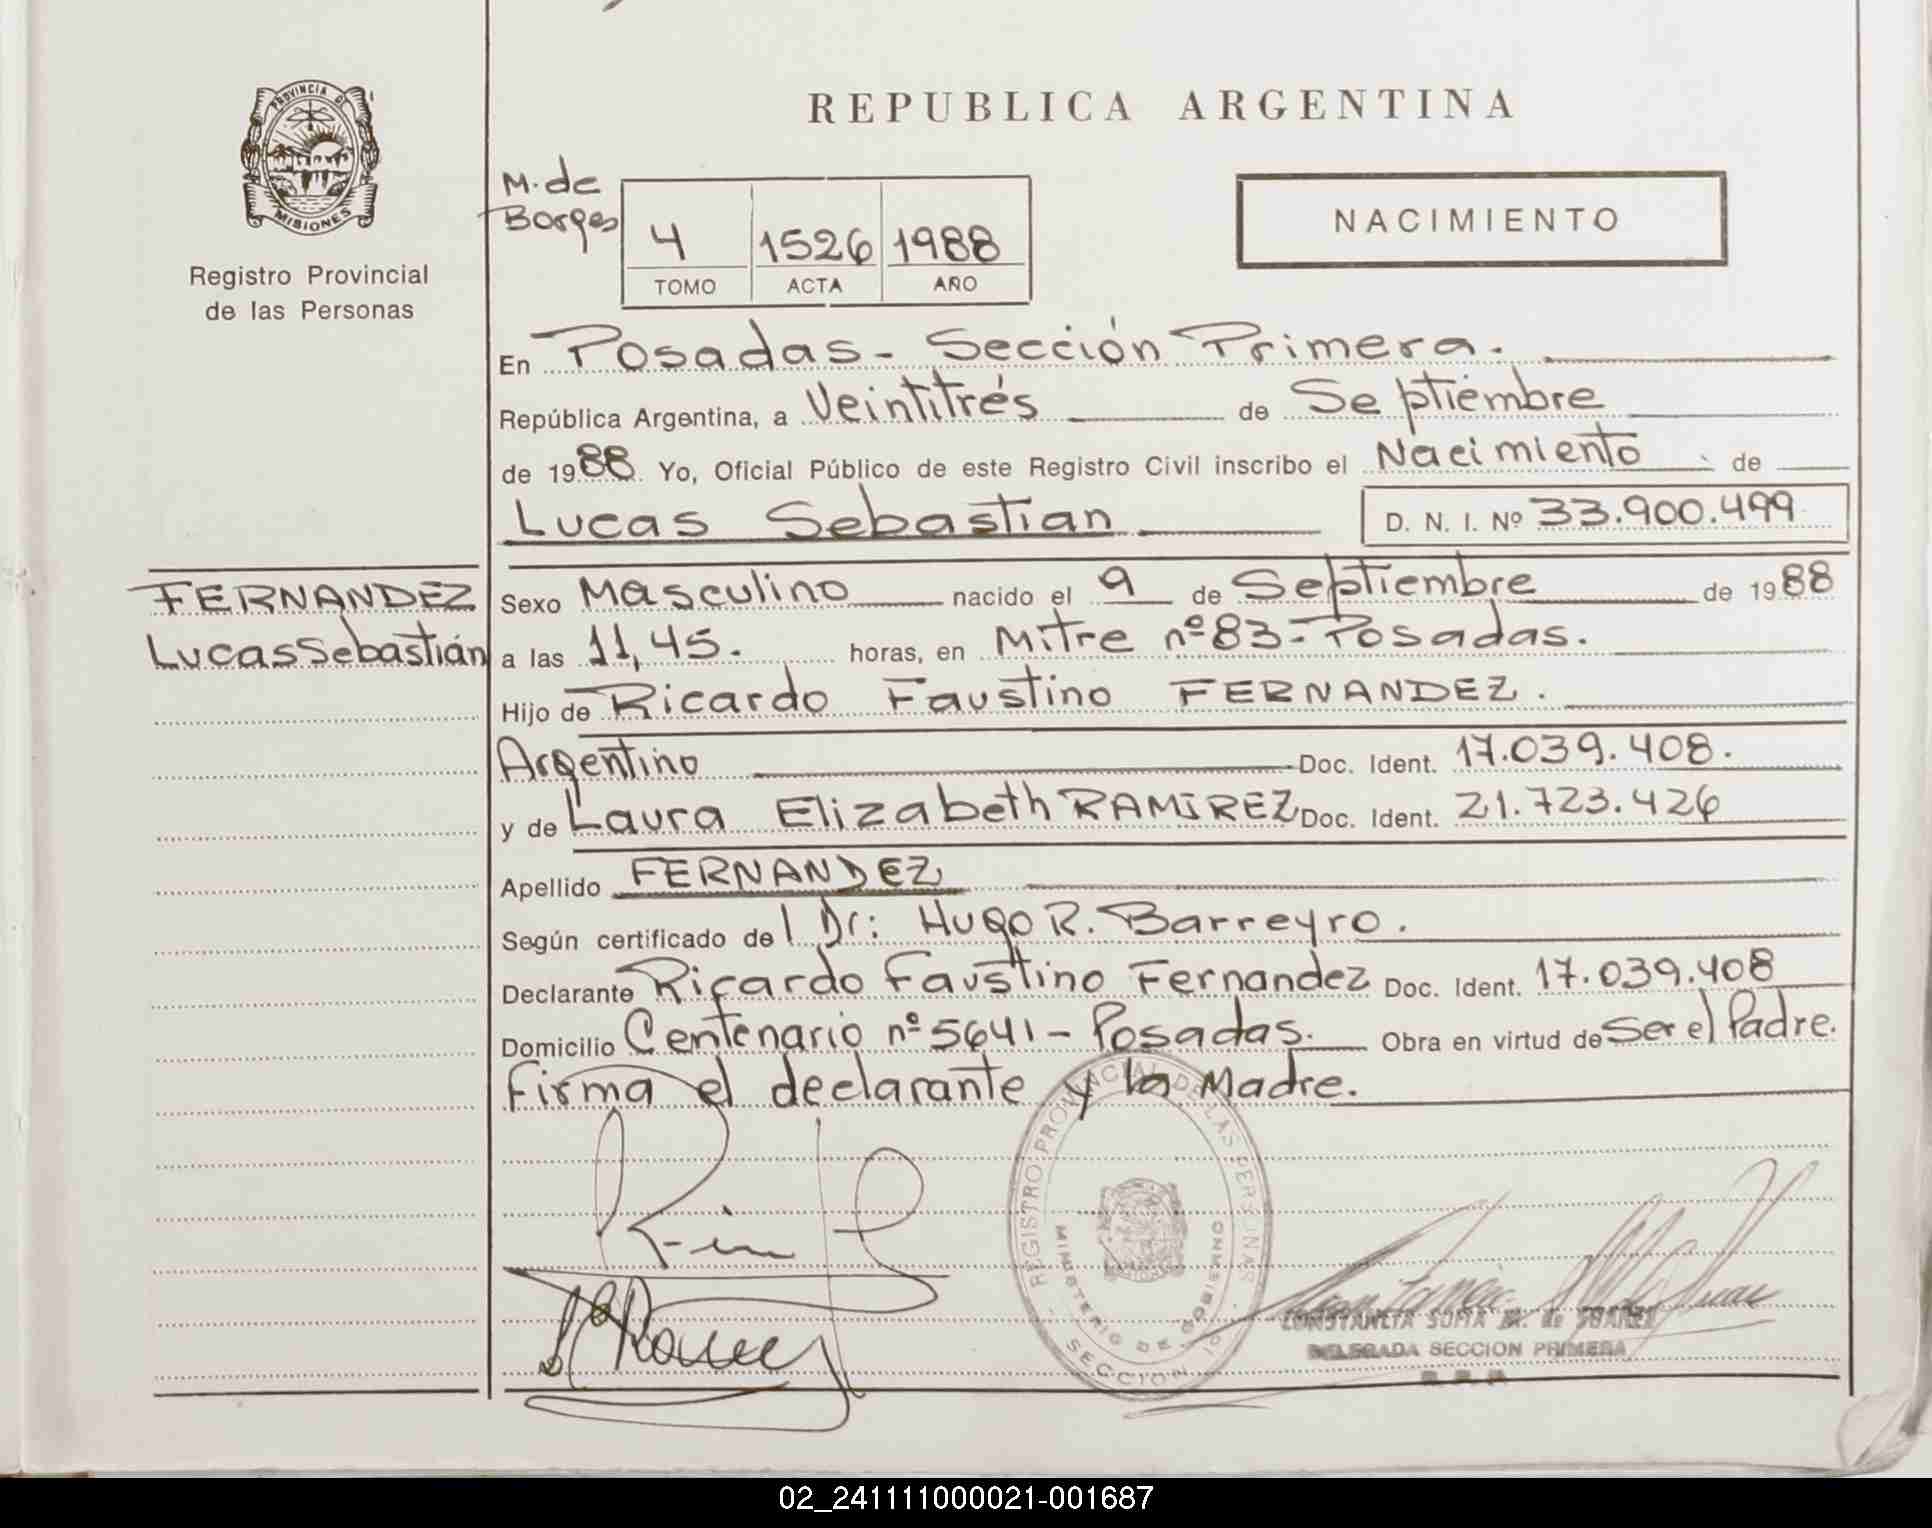 PROVINCIA DE
MISIONES
Registro Provincial
de las Personas
REPUBLICA ARGENTINA
M. de
Borges
4 1526 1988
TOMO ACTA AÑO
NACIMIENTO
En Posadas - Sección Primera.
República Argentina, a Veintitrés de Septiembre
de 1988. Yo, Oficial Público de este Registro Civil inscribo el Nacimiento de
Lucas Sebastian D. N. I. Nº 33.900.499
FERNANDEZ
Lucas Sebastián
Sexo Masculino nacido el 9 de Septiembre de 1988
a las 11,45. horas, en Mitre nº 83 - Posadas.
Hijo de Ricardo Faustino FERNANDEZ.
Argentino Doc. Ident. 17.039.408.
y de Laura Elizabeth RAMIREZ Doc. Ident. 21.723.426
Apellido FERNANDEZ
Según certificado del Dr: Hugo R. Barreyro.
Declarante Ricardo Faustino Fernandez Doc. Ident. 17.039.408
Domicilio Centenario nº 5641 - Posadas. Obra en virtud de Ser el Padre.
Firma el declarante y la Madre.
REGISTRO PROVINCIAL DE LAS PERSONAS
MINISTERIO DE GOBIERNO
SECCION
CONSTANCIA SOFIA M. de SUAREZ
DELEGADA SECCION PRIMERA
02_241111000021-001687